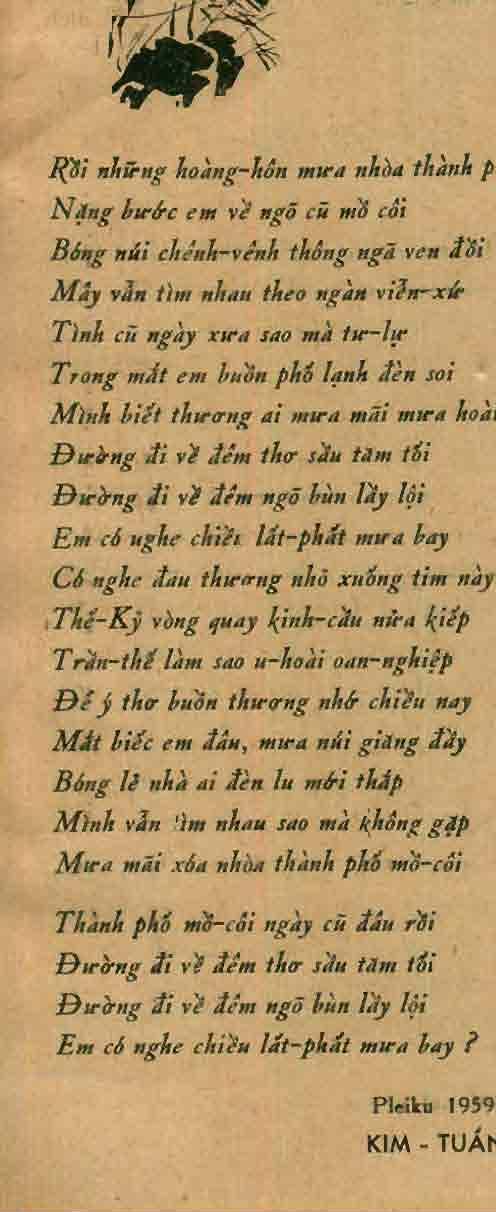 Rồi những hoàng-hôn mưa nhòa thành p
Nặng bước em về ngõ cũ mồ côi
Bóng núi chênh-vênh thông ngã ven đồi
Mây vẫn tìm nhau theo ngàn viễn-xứ
Tình cũ ngày xưa sao mà tư-lự
Trong mắt em buồn phố lạnh đèn soi
Mình biết thương ai mưa mãi mưa hoài
Đường đi về đêm thơ sầu tăm tối
Đường đi về đêm ngõ bùn lầy lội
Em có nghe chiều lất-phất mưa bay
Có nghe đau thương nhỏ xuống tim này
Thế-Kỷ vòng quay kinh-cầu nửa kiếp
Trần-thế làm sao u-hoài oan-nghiệp
Để ý thơ buồn thương nhớ chiều nay
Mắt biếc em đâu, mưa núi giăng đầy
Bóng lẻ nhà ai đèn lu mới thắp
Mình vẫn tìm nhau sao mà không gặp
Mưa mãi xóa nhòa thành phố mồ-côi
Thành phố mồ-côi ngày cũ đâu rồi
Đường đi về đêm thơ sầu tăm tối
Đường đi về đêm ngõ bùn lầy lội
Em có nghe chiều lất-phất mưa bay ?
Pleiku 1959
KIM - TUẤN